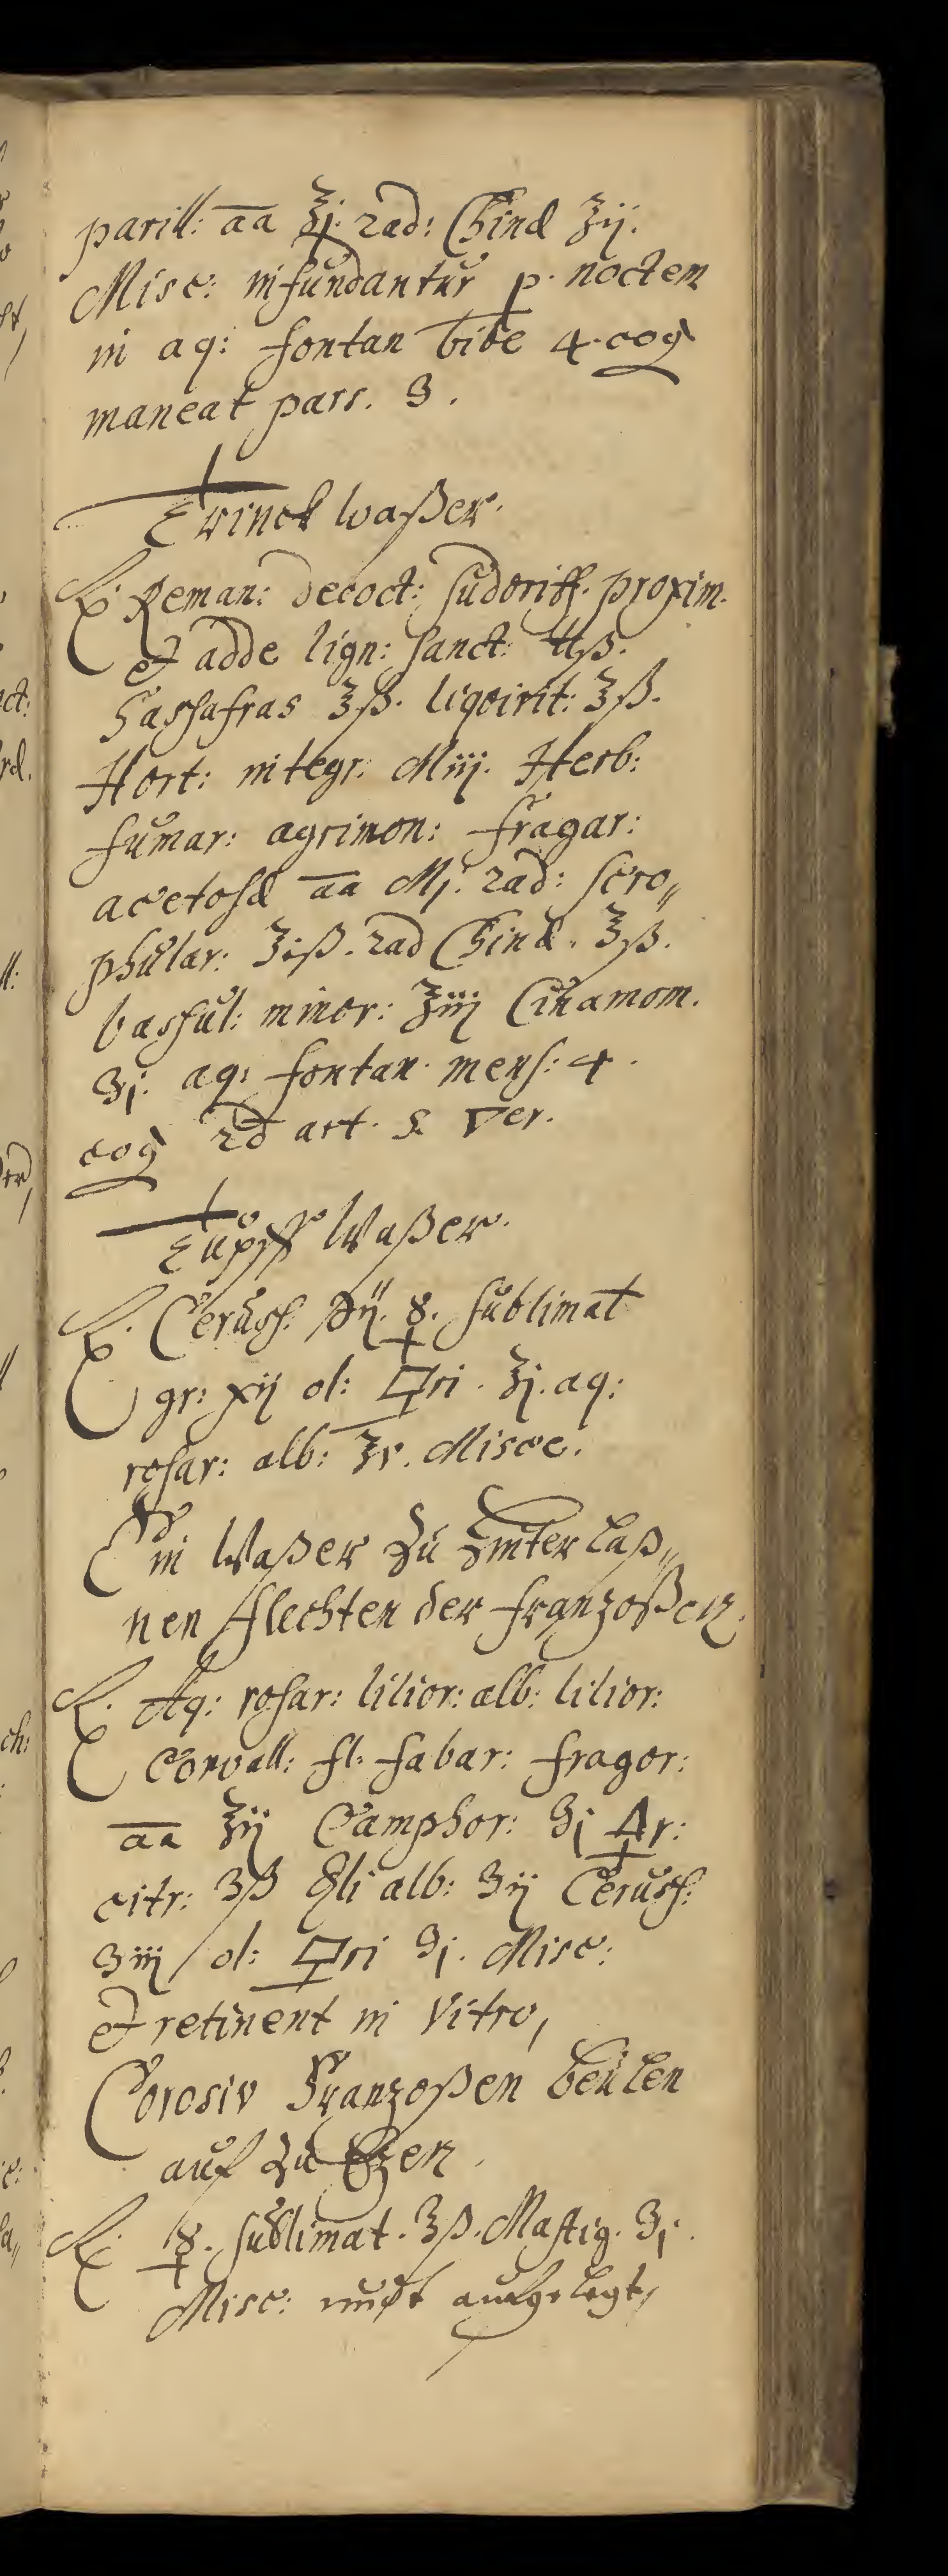 parill: aa ℥j. rad: Chinæ ℥ij.
Misc: infundantur p. noctem
in aq: fontan libr 4. coq
maneat pars. 3.
Trinck waßer.
℞. Reman: decoct: sudoriff. proxim.
et adde lign: sanct: ℔ß.
Sassafras ℥ß. liqvirit: ℥ß.
Hort: integr: Miij. Herb:
fumar: agrimon: fragar:
acetosæ aa Mj. rad: scro„
phular: ℥iß. rad Chinæ. ℥ß.
passul: minor: ℥iij Cinamom.
ʒj. aq: fontan. mens: 4.
coq ad art. &
Tupff Waßer.
℞. Ceruss. ʒij. ☿. sublimat
gr: xij ol: 🜿ri. ℥j. aq:
rosar: alb: ℥v. Misce.
Ein Waßer zu hinterlaß„
nen flechten der franzoßen.
℞. Aq: rosar: lilior: alb: lilior:
Convall: fl: fabar: fragor:
aa ℥ij Camphor: ʒj 🜍r:
citr: ʒß alb: ʒij Ceruss:
ʒiij ol: 🜿ri ʒj. Misc:
et retinent in Vitro,
Corosiv Franzoßen beulen
auf zu Etzen.
℞. ☿. sublimat. ʒß. Mastig. ʒj.
Misc: aufgelegt,